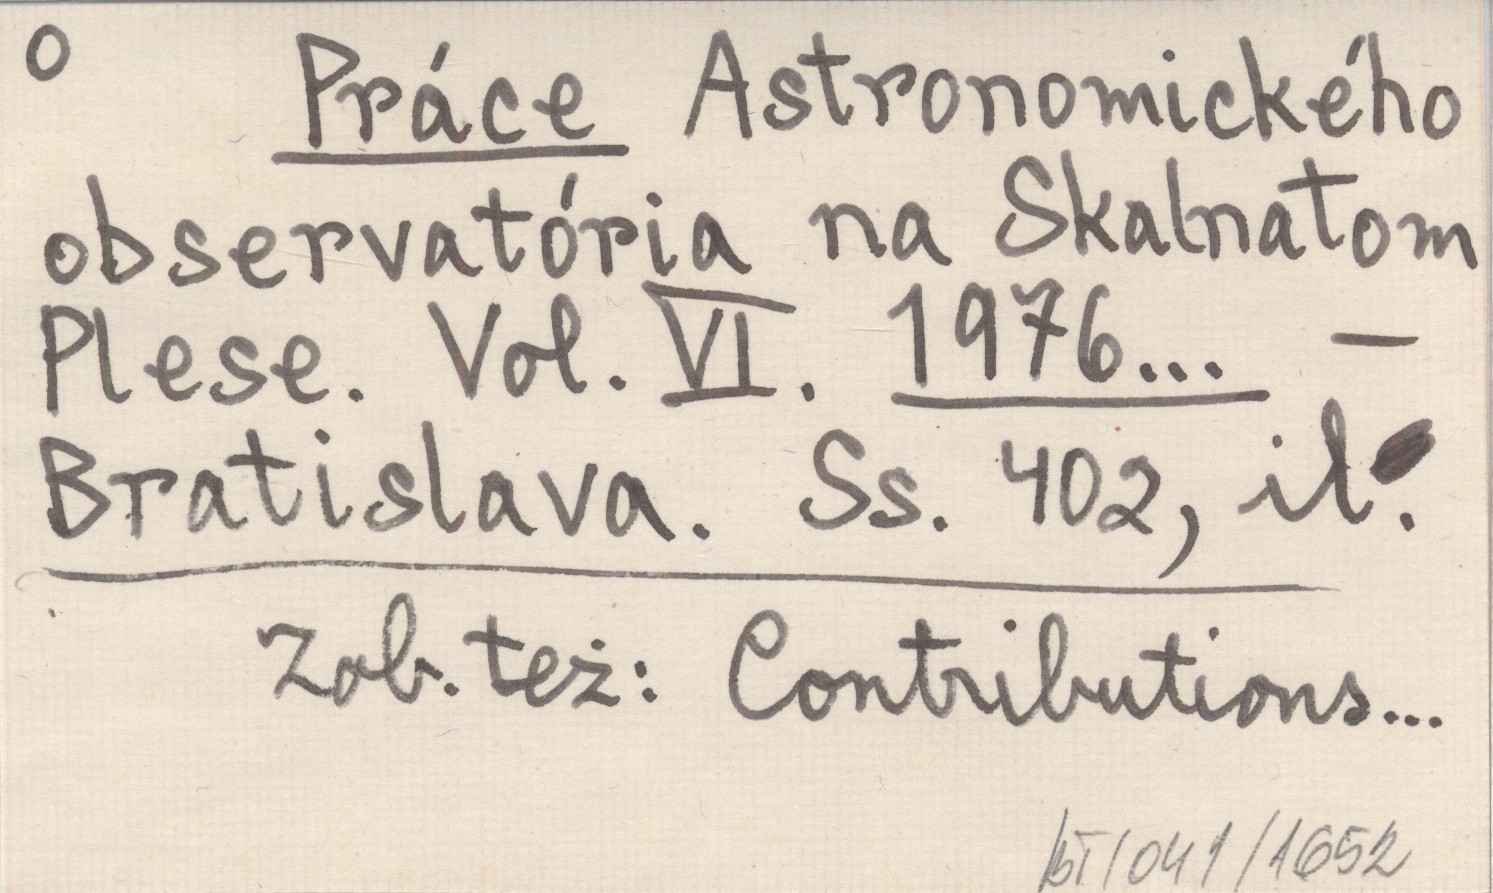 O Práce Astronomického
observatória na Skalnatom
Plese. Vol. VI. 1976... —
Bratislava. Ss. 402, il.
Zob. też: Contributions...
/041/1652